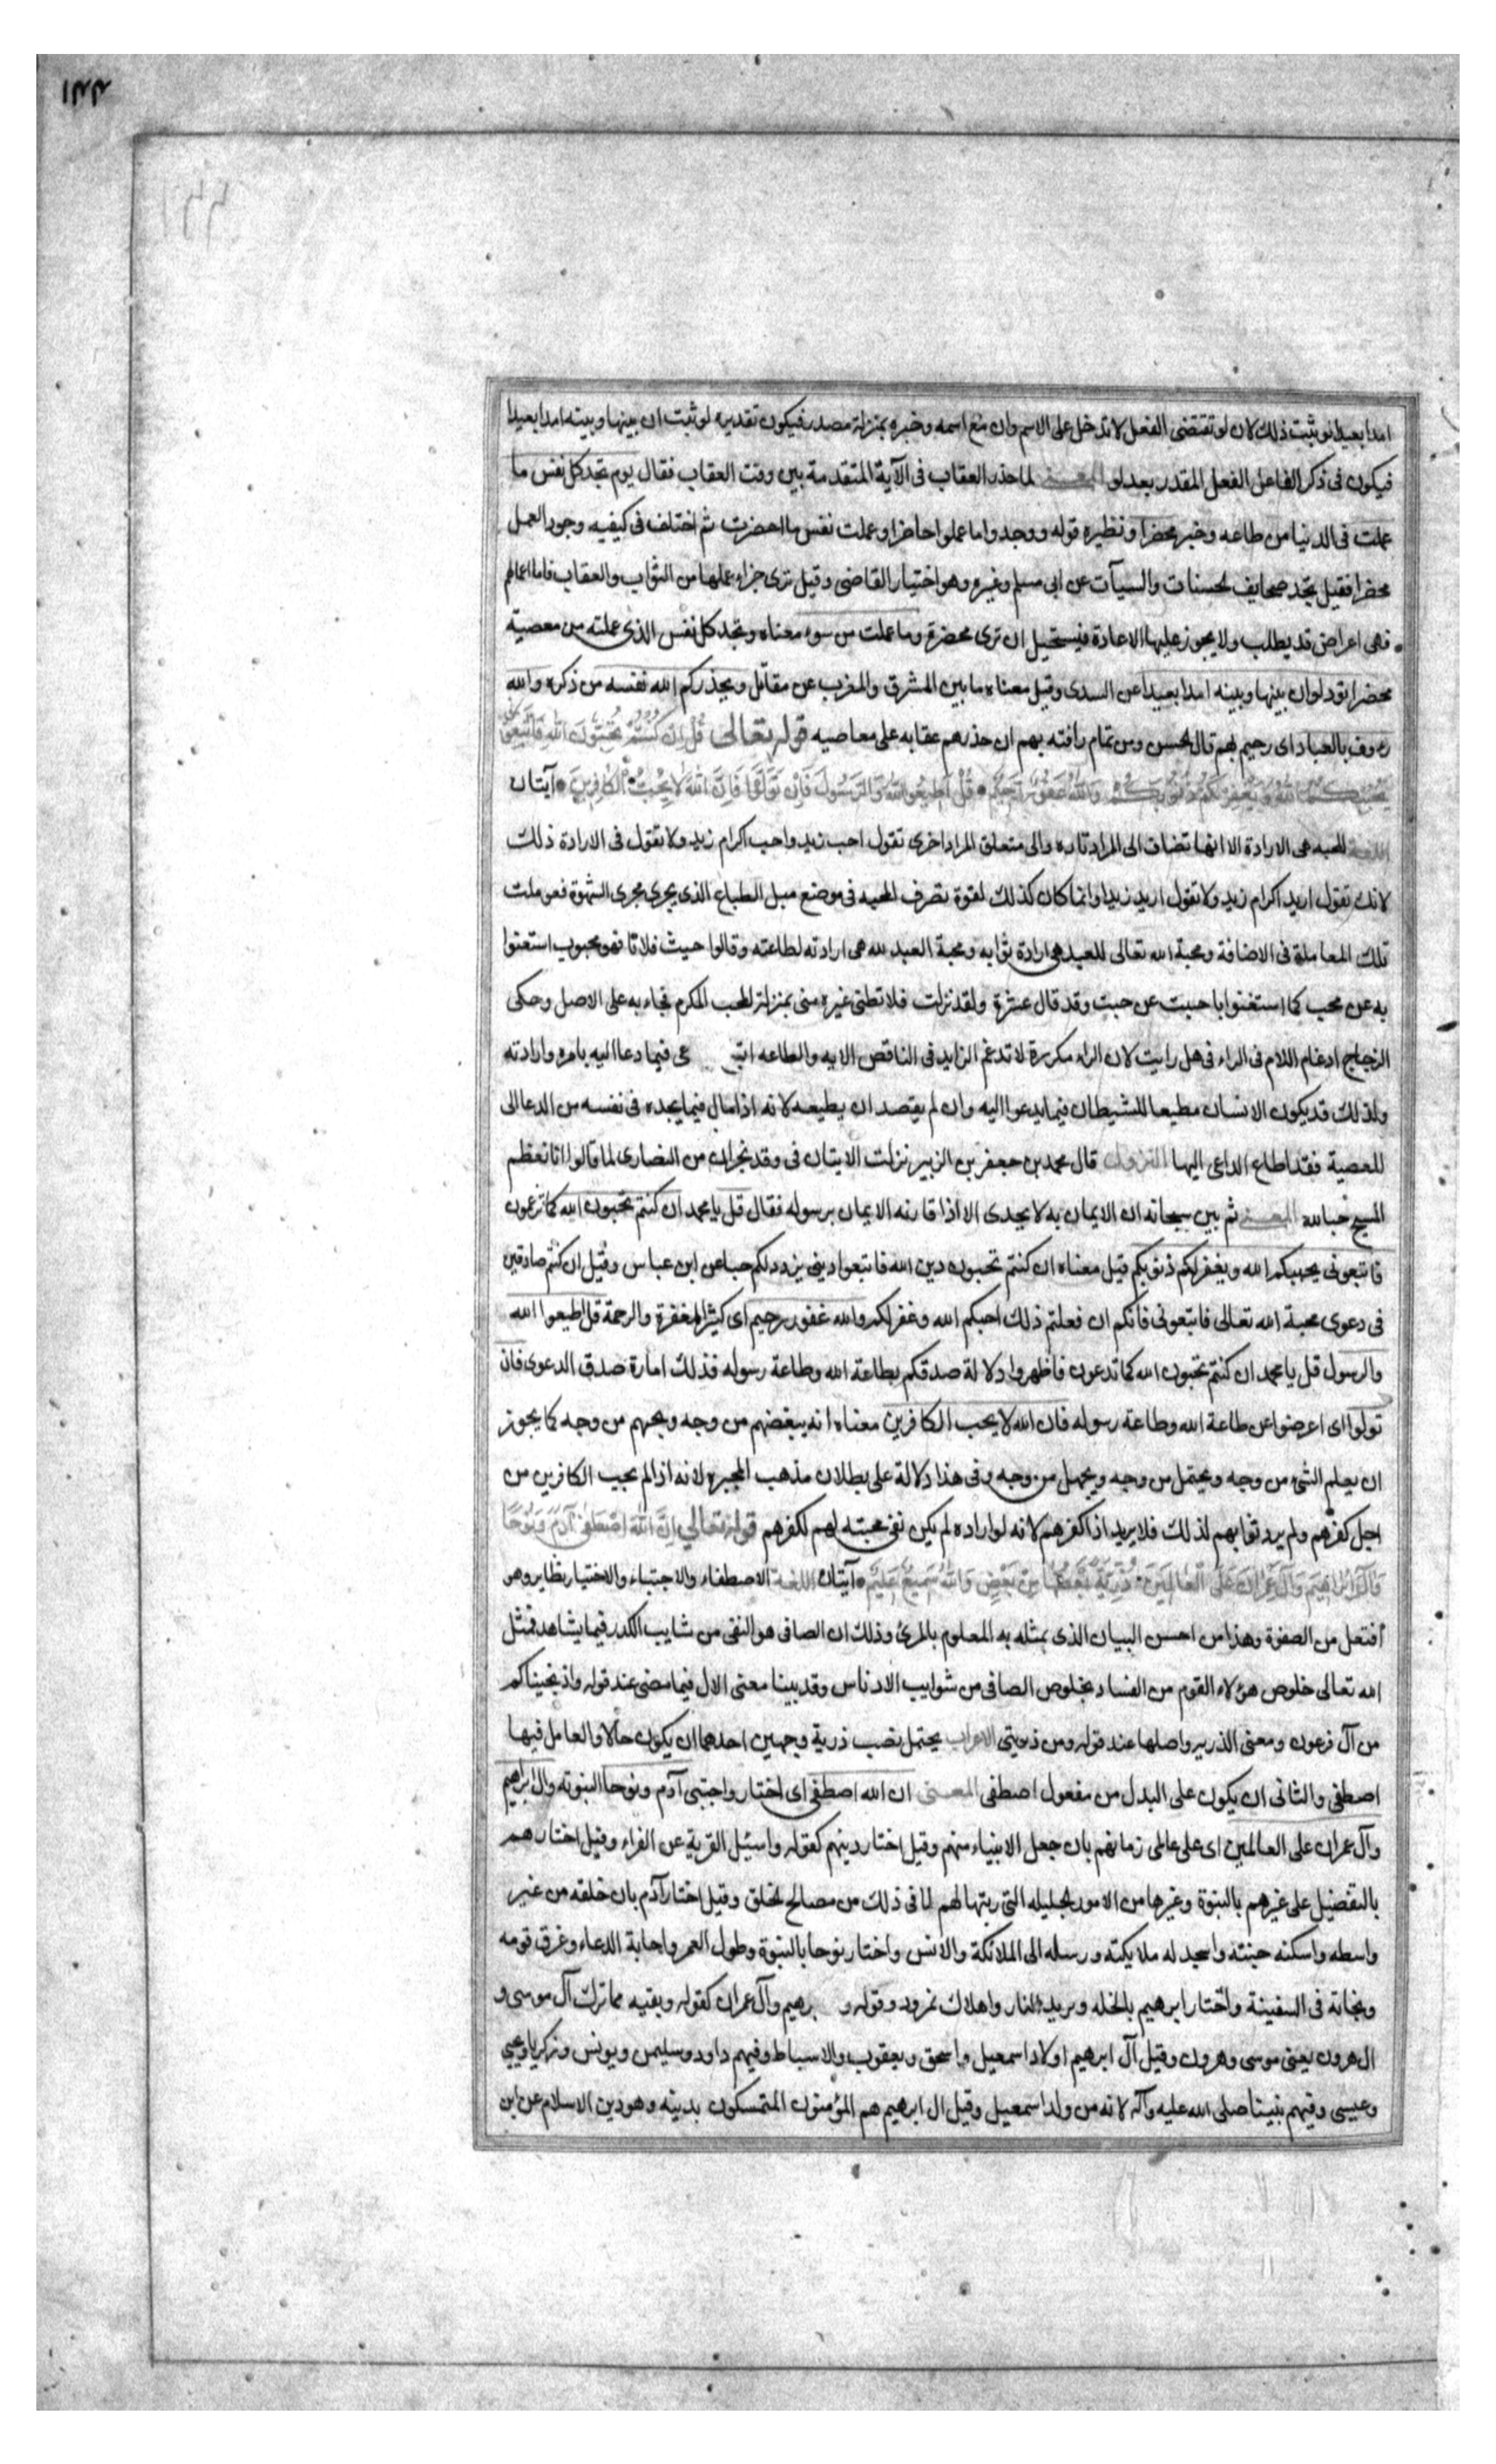 ١٢٢
امدا بعيدا لو ثبت ذلك لان لو تقتضى الفعل لا تدخل على الاسم وان مع اسمه وخبره بمنزلة مصدر فيكون تقديره لو ثبت ان بينها وبينه امدا بعيدا
فيكون فى ذكر الفاعل الفعل المقدر بعد لو المعنى لما حذر العقاب فى الآية المتقدمة بين وقت العقاب فقال يوم تجد كل نفس ما
عملت فى الدنيا من طاعه وخير محضرا ونظيره قوله ووجدوا ما عملوا حاضرا وعملت نفس ما احضرت ثم اختلف فى كيفيه وجود العمل
محضرا فقيل تجد صحايف الحسنات والسيآت عن ابى مسلم وغيره وهو اختيار القاضى وقيل ترى جزاء عملها من الثواب والعقاب فاما اعمالهم
فهى اعراض قد يطلب ولا يجوز عليها الاعادة فيستحيل ان ترى محضرة وما عملت من سوء معناه وتجد كل نفس الذى عملته من معصية
محضرا تود لو ان بينها وبينه امدا بعيدا عن السدى وقيل معناه ما بين المشرق والمغرب عن مقاتل ويحذركم الله نفسه من ذكره والله
رءوف بالعباد اى رحيم بهم قال الحسن ومن تمام رأفته بهم ان حذرهم عقابه على معاصيه قوله تعالى قُلْ اِنْ كُنْتُمْ تُحِبُّونَ اللهَ فَاتَّبِعُونى
يُحْبِبْكُمُ اللهُ وَيَغْفِرْ لَكُمْ ذُنُوبَكُمْ وَاللهُ غَفُورٌ رَحيمٌ قُلْ اَطيعُوا اللهَ وَالرَّسُولَ فَاِنْ تَوَلَّوْا فَاِنَّ اللهَ لا يُحِبُّ الْكافِرينَ آيتان
اللغة المحبه هى الارادة الا انها تضاف الى المراد تاره والى متعلق المراد اخرى تقول احب زيد واحب اكرام زيد ولا تقول فى الارادة ذلك
لانك تقول اريد اكرام زيد ولا تقول اريد زيدا وانما كان كذلك لقوة تصرف المحبه فى موضع ميل الطباع الذى يجرى مجرى الشهوة فعوملت
تلك المعاملة فى الاضافة ومحبة الله تعالى للعبد هى ارادة ثوابه ومحبة العبد لله هى ارادته لطاعته وقالوا حببت فلانا فهو محبوب استغنوا
به عن محب كما استغنوا باحببت عن حببت وقد قال عنترة ولقد نزلت فلا تظنى غيره منى بمنزلة المحب المكرم فجاء به على الاصل وحكى
الزجاج ادغام اللام فى الراء فى هل رايت لان الراء مكررة لا تدغم الزايد فى الناقص الايه والطاعه عى فيما دعا اليه بامره وارادته
ولذلك قد يكون الانسان مطيعا للشيطان فيما يدعوا اليه وان لم يقصد ان يطيعه لانه اذا مال فيما يجده فى نفسه من الدعا الى
المعصية فقد اطاع الداعى اليها النزول قال محمد بن جعفر بن الزبير نزلت الايتان فى وفد نجران من النصارى لما قالوا انا نعظم
المسيح حبا لله المعنى ثم بين سبحانه ان الايمان به لا يجدى الا اذا قارنه الايمان برسوله فقال قل يا محمد ان كنتم تحبون الله كما تزعمون
فاتبعونى يحببكم الله ويغفر لكم ذنوبكم قيل معناه ان كنتم تحبون دين الله فاتبعوا دينى يزدد لكم حبا عن ابن عباس وقيل ان كنتم صادقين
فى دعوى محبة الله تعالى فاتبعونى فانكم ان فعلتم ذلك احبكم الله وغفر لكم والله غفور رحيم اى كثير المغفرة والرحمة قل اطيعوا الله
والرسول قل يا محمد ان كنتم تحبون الله كما تدعون فاظهروا دلالة صدقكم بطاعة الله وطاعة رسوله فذلك امارة صدق الدعوى فان
تولوا اى اعرضوا عن طاعة الله وطاعة رسوله فان الله لا يحب الكافرين معناه انه يبغضهم من وجه ويحبهم من وجه كما يجوز
ان يعلم الشئ من وجه ويحتمل من وجه ويجهل من وجه وفى هذا دلالة على بطلان مذهب المجبره لانه اذا لم يحب الكافرين من
اجل كفرهم ولم يرد ثوابهم لذلك فلا يريد اذا كفرهم لانه لو اراده لم يكن نفى محبته لهم لكفرهم قوله تعالى اِنَّ اللهَ اصْطَفى آدَمَ وَنُوحًا
وَآلَ اِبْراهيمَ وَآلَ عِمْرانَ عَلَى الْعالَمينَ ذُرِّيَّةً بَعْضُها مِنْ بَعْضٍ وَاللهُ سَميعٌ عَليمٌ آيتان اللغة الاصطفاء والاجتباء والاختيار نظاير وهو
افتعل من الصفوة وهذا من احسن البيان الذى يمثله به المعلوم بالمرئ وذلك ان الصافى هو النقى من شايب الكدر فيما يشاهد فمثل
الله تعالى خلوص هؤلاء القوم من الفساد بخلوص الصافى من شوايب الادناس وقد بينا معنى الال فيما مضى عند قوله واذ نجيناكم
من آل فرعون ومعنى الذريه واصلها عند قوله ومن ذريتى الاعراب يحتمل نصب ذرية وجهين احدهما ان يكون حالا والعامل فيها
اصطفى والثانى ان يكون على البدل من مفعول اصطفى المعنى ان الله اصطفى اى اختار واجتبى آدم ونوحا لنبوته وال ابراهيم
وآل عمران على العالمين اى على عالمى زمانهم بان جعل الانبياء منهم وقيل اختار دينهم كقوله واسئل القرية عن الفراء وقيل اختارهم
بالتفضيل على غيرهم بالنبوة وغيرها من الامور الجليله التى ربتها لهم لما فى ذلك من مصالح الخلق وقيل اختار آدم بان خلقه من غير
واسطه واسكنه جنته واسجد له ملايكته ورسله الى الملائكة والانس واختار نوحا بالنبوة وطول العمر واجابة الدعاء وغرق قومه
ونجاته فى السفينة واختار ابرهيم بالخله وبريد النار واهلاك نمرود وقوله و برهيم وآل عمران كقوله وبقيه مما ترك آل موسى و
ال هرون يعنى موسى وهرون وقيل آل ابرهيم اولاد اسمعيل واسحق ويعقوب والاسباط وفيهم داود وسليمن ويونس وزكريا ويحيى
وعيسى وفيهم نبينا صلى الله عليه وآله لانه من ولد اسمعيل وقيل ال ابرهيم هم المؤمنون المتمسكون بدينه وهو دين الاسلام عن ابن